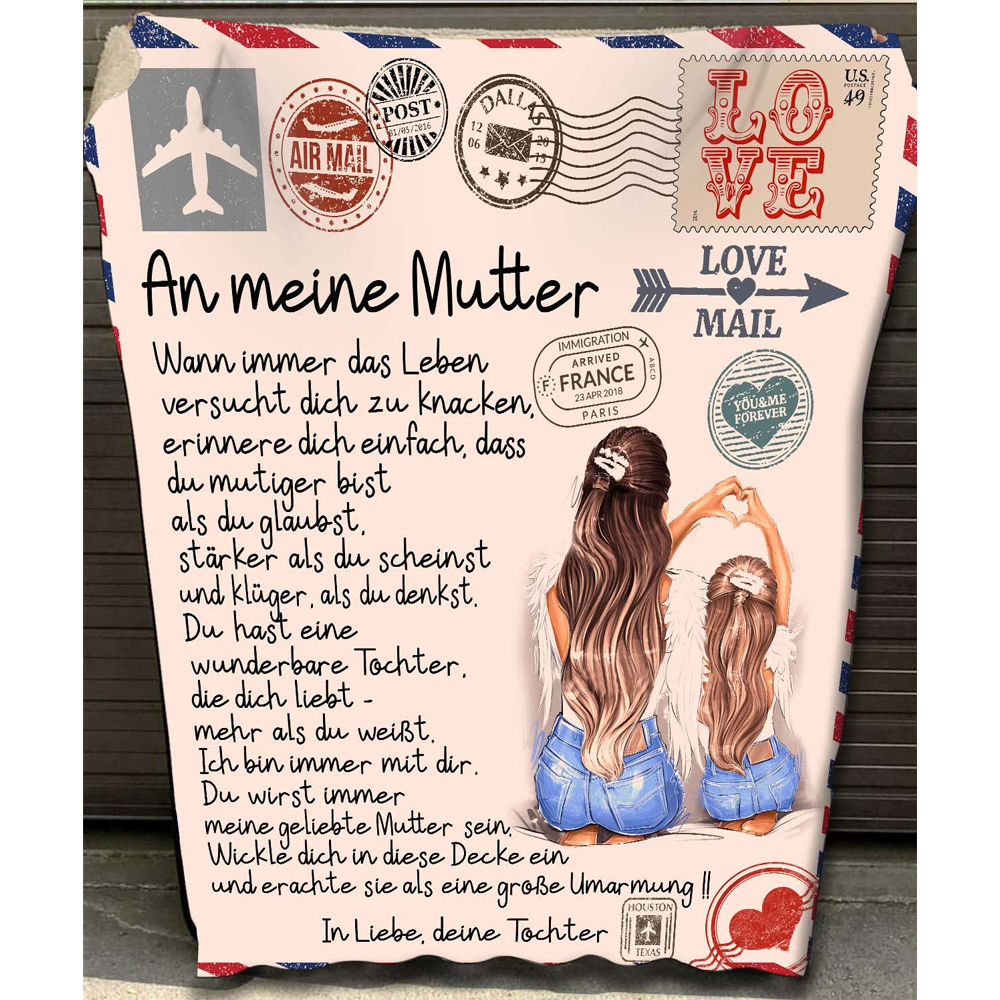 AIR MAIL
POST
01/05/2016
DALLAS
12 20
06 15
LO
VE
U.S.
POSTAGE
49
2014
An meine Mutter
LOVE
MAIL
IMMIGRATION
ARRIVED
F FRANCE
23 APR 2018
PARIS
ABCD
YOU&ME
FOREVER
Wann immer das Leben
versucht dich zu knacken,
erinnere dich einfach, dass
du mutiger bist
als du glaubst,
stärker als du scheinst
und klüger, als du denkst.
Du hast eine
wunderbare Tochter,
die dich liebt -
mehr als du weißt.
Ich bin immer mit dir.
Du wirst immer
meine geliebte Mutter sein.
Wickle dich in diese Decke ein
und erachte sie als eine große Umarmung !!
In Liebe, deine Tochter
HOUSTON
TEXAS